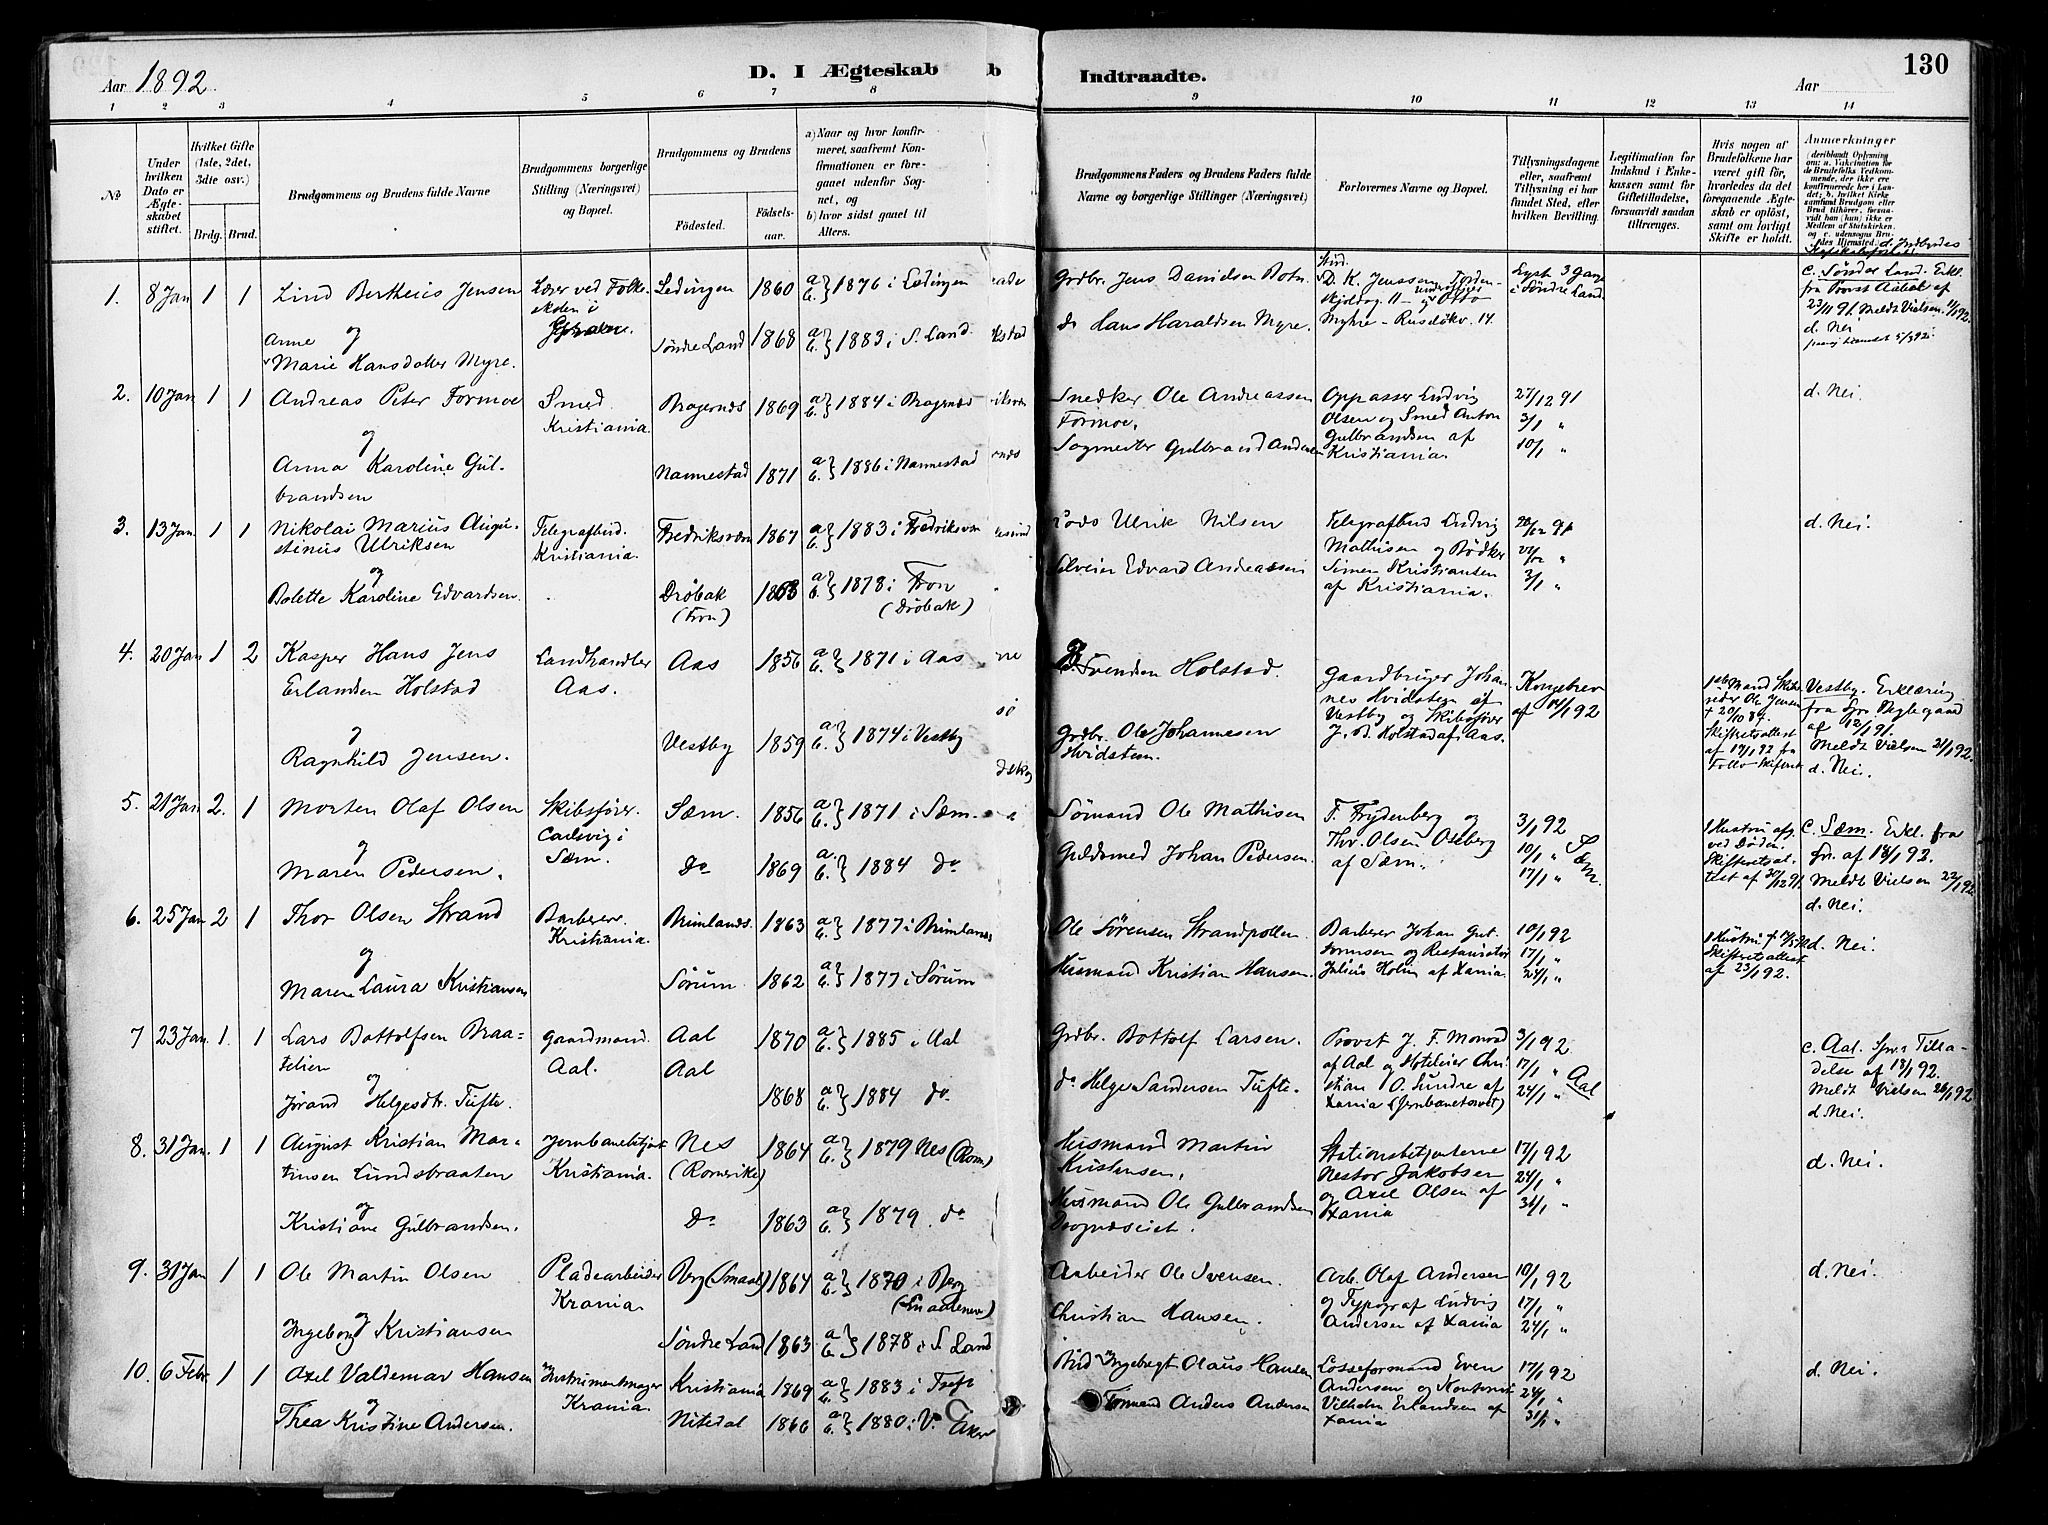 Aar 1892.
D. I Ægteskab
b
Indtraadte.
Aar
130
1 2 3 4 5 6 7 8 9 10 11 12 13 14
No
Under hvilken Dato er Ægteskabet stiftet.
Hvilket Gifte (1ste, 2det, 3die osv.)
Brdg. Brud.
Brudgommens og Brudens fulde Navne
Brudgommens borgerlige Stilling (Næringsvei) og Bopæl.
Brudgommens og Brudens
Födested.
Födselsaar.
a) Naar og hvor konfirmeret, saafremt Konfirmationen er foregaaet udenfor Sognet, og
b) hvor sidst gaaet til Alters.
Brudgommens Faders og Brudens Faders fulde Navne og borgerlige Stillinger (Næringsvei)
Forlovernes Navne og Bopæl.
Tillysningsdagene eller, saafremt Tillysning ei har fundet Sted, efter hvilken Bevilling.
Legitimation for Indskud i Enkekassen samt for Giftetilladelse, forsaavidt saadan tiltrænges.
Hvis nogen af Brudefolkene har været gift för, hvorledes da det foregaaende Ægteskab er oplöst, samt om lovligt Skifte er holdt.
Anmærkninger
1. 8 Jan 1 1 Lind Bertheus Jensen
Lærer ved Folkeskolen i
Lødingen 1860 a b } 1876 i Lødingen
Grdbr. Jens Danielsen Botn.
Lyst 3 Gange i Söndre Land.
c. Sönder Land. Erkl. fra Provst Aabel af 23/11 91. Meldt Vielsen 11/1 92.
d. Nei
Anne
og
Marie Hansdatter Myre.
Söndre Land 1868 a b } 1883 i S. Land.
do Hans Haraldsen Myre.
Myhre - Rusölökv. 14.
2. 10 Jan 1 1 Andreas Peter Formoe
Smed. Kristiania.
Bragernæs 1869 a b } 1884 i Bragernæs
Snedker Ole Andreassen Formoe.
Oppasser Ludvig Olsen og Smed Anton Gulbrandsen af Kristiania.
27/12 91
3/1 "
10/1 "
d. Nei.
og
Anna Karoline Gulbrandsen
Nannestad 1871 a b } 1886 i Nannestad
Sagmester Gulbrand Andersen
3. 13 Jan 1 1 Nikolai Marius Augustinus Ulriksen
Telegrafbud. Kristiania.
Fredriksværn 1867 a b } 1883 i Fredriksværn
Lods Ulrik Nilsen
Telegrafbud Ludvig Mathisen og Bödker Simen Kristiansen af Kristiania.
3/1 "
d. Nei.
og
Bolette Karoline Edvardsen.
Dröbak (Fron) 1863 a b } 1878 i Fron (Dröbak)
Edvard Andreassen
4. 20 Jan 1 2 Kasper Hans Jens Erlandsen Holstad
Landhandler Aas.
Aas 1856 a b } 1871 i Aas
Svendsen Holstad.
Gaardbruger Johannes Hvidsten af Vestby og Skibsförer J. B. Holstad af Aas.
Kongebrev af 14/1 92
Skifteretsattest af 19/1 92 fra Follo
Vestby. Erklæring fra Spr. Neglegaard af 12/1 91.
Meldt Vielsen 21/1 92.
d. Nei.
og
Ragnhild Jensen.
Vestby 1859 a b } 1874 i Vestby
Grdbr. Ole Johannesen Hvidsteen.
5. 21 Jan 2. 1 Morten Olaf Olsen
Skibsförer. Carlsvig i Sæm.
Sæm. 1856 a b } 1871 i Sæm.
Sömand Ole Mathisen
F. Frydenberg og Thv. Olsen Ostberg af Sæm.
3/1 92
10/1 "
17/1 "
Sæm.
1 Hustru afg. ved Döden. Skifteretsattest af 30/12 91.
c. Sæm. Erkl. fra Spr. af 18/1 92.
Meldt Vielsen 22/1 92
d. Nei.
og
Maren Pedersen.
Do 1869 a. b. } 1884 do
Guldsmed Johan Pedersen.
6. 25 Jan 2 1 Thor Olsen Strand
Barberer. Kristiania.
Brunlanæs. 1863 a b } 1877 i Brunlanæs
Ole Sörensen Strandpollen.
Barberer Johan Guttormsen og Restauratör Julius Holm af Xania.
10/1 92
17/1 "
24/1 "
Skifteretsattest af 23/1 92.
d. Nei.
og
Maren Laura Kristiansen
Sörum. 1862 a b } 1877 i Sörum
Husmand Kristian Hansen.
7 23 Jan. 1. 1 Lars Bottolfsen Braatelien
Gaardmand. Aal.
Aal 1870 a b } 1885 i Aal
Grdbr. Bottolf Larsen.
Provst J. F. Monrad af Aal og Hoteleier Christian O. Sundre af Xania (Jernbanetorvet)
3/1 92
17/1 "
24/1 "
Aal
c. Aal. Spr. Tilladelse af 18/1 92.
Meldt Vielsen 26/1 92
d. Nei.
og
Jörand Helgesdtr. Tufte.
Aal 1868 a b } 1884 do.
do Helge Sandersen Tufte.
8. 31 Jan. 1 1 August Kristian Martinsen Lundsbraaten
Jernbanebetjent Kristiania.
Nes (Romerike) 1864 a b } 1879 Nes (Rom)
Husmand Martin Kristensen.
Stationsbetjenterne Nestor Jakobsen og Axel Olsen af Xania
17/1 92
24/1 "
31/1 "
d. Nei.
og
Kristiane Gulbrandsen.
Do 1863 a b } 1879. do
Husmand Ole Gulbrandsen
9. 31 Jan 1 1 Ole Martin Olsen
Pladearbeider Krania.
Berg (Smaal) 1864 a b } 1870 i Berg (Smaalenene)
Arbeider Ole Svensen.
Arb. Olaf Andersen og Typograf Ludvig Andersen af Xania
10/1 92
17/1 "
24/1 "
d. Nei.
og
Ingeborg Kristiansen
Söndre Land 1863 a b } 1878 i S. Land
Christian Hansen.
10. 6 Febr 1 1 Axel Valdemar Hansen
Instrumentmager Krania.
Kristiania 1869 a b } 1883 i Trefr
Bud Ingebregt Olaus Hansen
Losseformand Even Andersen og Kontorist Vilhelm Erlandsen af Xania
17/1 92
24/1 "
31/1 "
d. Nei.
og
Thea Kristine Andersen.
Nitedal 1866 a b } 1880 i V. Aker
Formand Anders Andersen